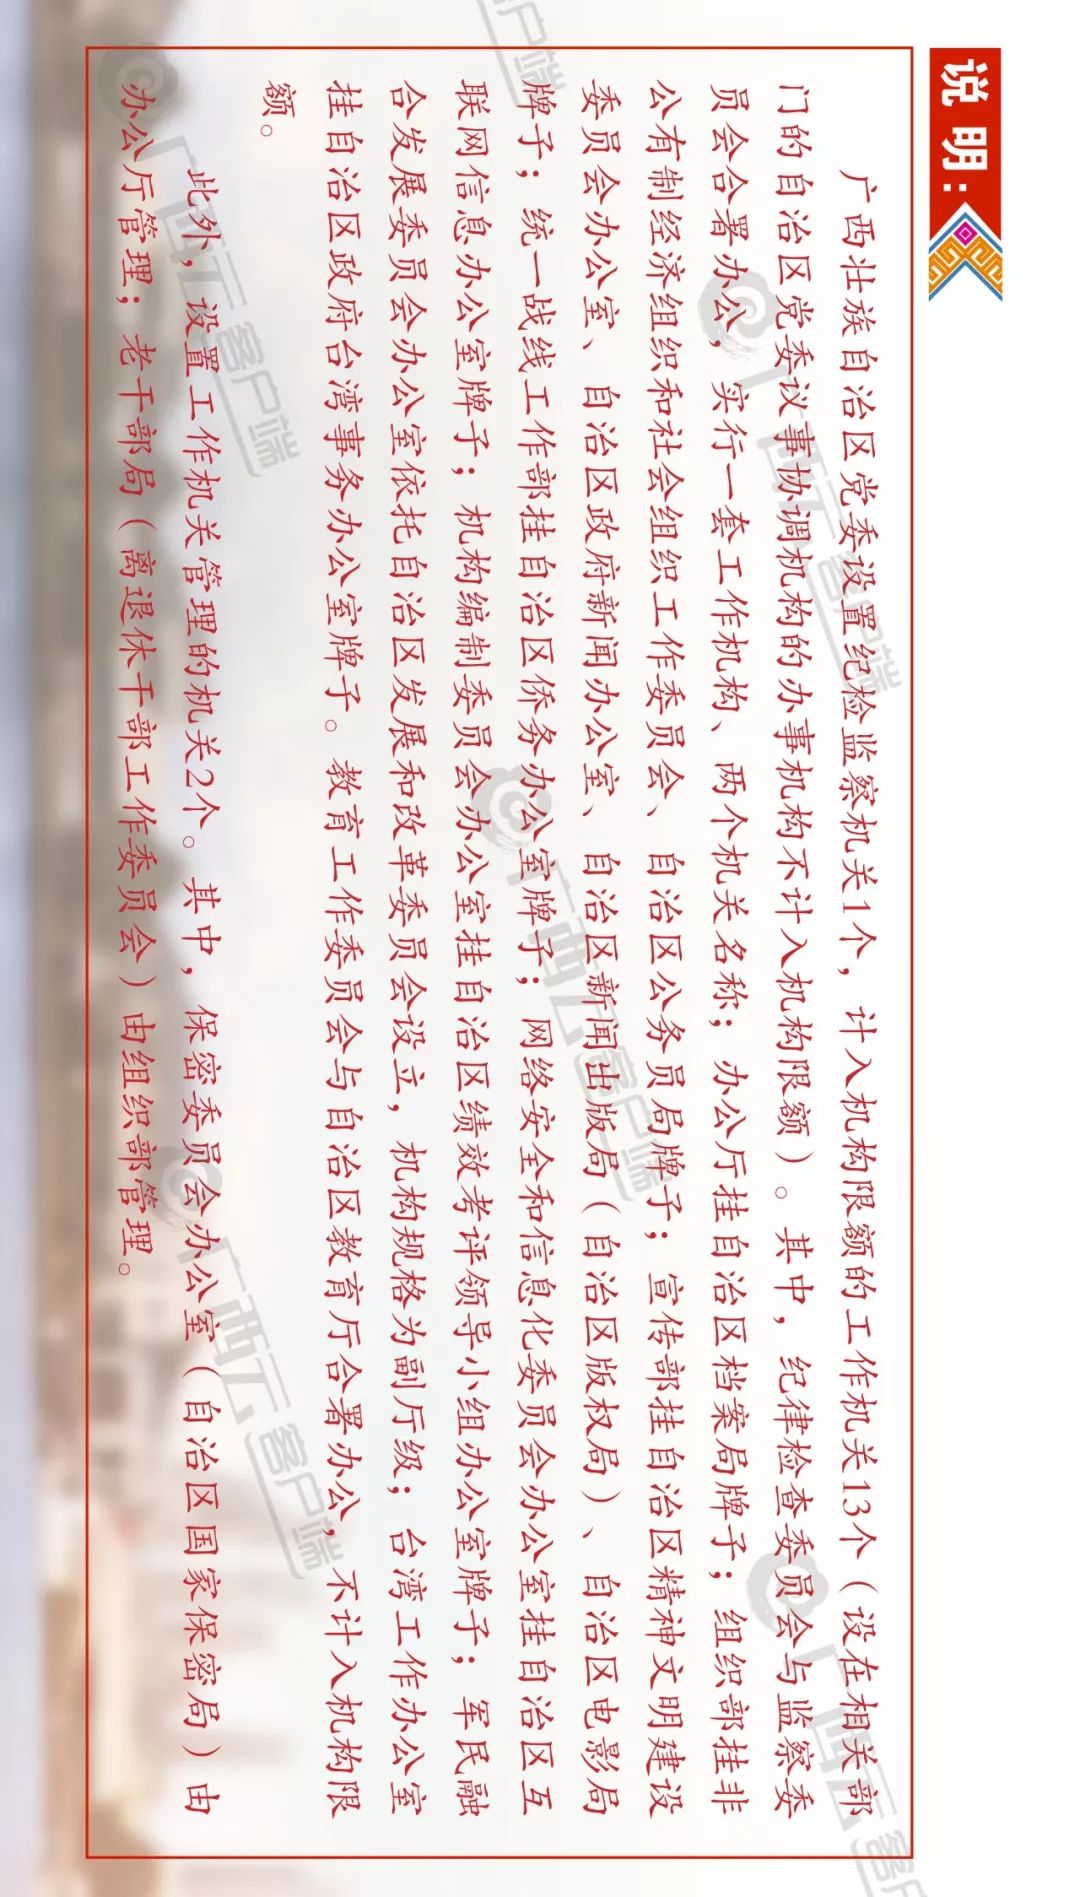 说明：
广西壮族自治区党委设置纪检监察机关1个，计入机构限额的工作机关13个（设在相关部
门的自治区党委议事协调机构的办事机构不计入机构限额）。其中，纪律检查委员会与监察委
员会合署办公，实行一套工作机构、两个机关名称；办公厅挂自治区档案局牌子；组织部挂非
公有制经济组织和社会组织工作委员会、自治区公务员局牌子；宣传部挂自治区精神文明建设
委员会办公室、自治区政府新闻办公室、自治区新闻出版局（自治区版权局）、自治区电影局
牌子；统一战线工作部挂自治区侨务办公室牌子；网络安全和信息化委员会办公室挂自治区互
联网信息办公室牌子；机构编制委员会办公室挂自治区绩效考评领导小组办公室牌子；军民融
合发展委员会办公室依托自治区发展和改革委员会设立，机构规格为副厅级；台湾工作办公室
挂自治区政府台湾事务办公室牌子。教育工作委员会与自治区教育厅合署办公，不计入机构限
额。
此外，设置工作机关管理的机关2个。其中，保密委员会办公室（自治区国家保密局）由
办公厅管理；老干部局（离退休干部工作委员会）由组织部管理。
广西云客户端
广西云客户端
广西云客户端
广西云客户端
广西云客户端
客户端